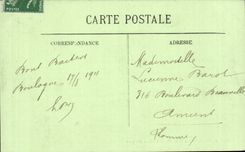 CARTE POSTALE
CORRESPONDANCE
ADRESSE
Bons Baisers
Boulogne 17/8 1911
Mademoiselle
Lucienne Barot
316 Boulevard Beauvillé
Amiens
Somme